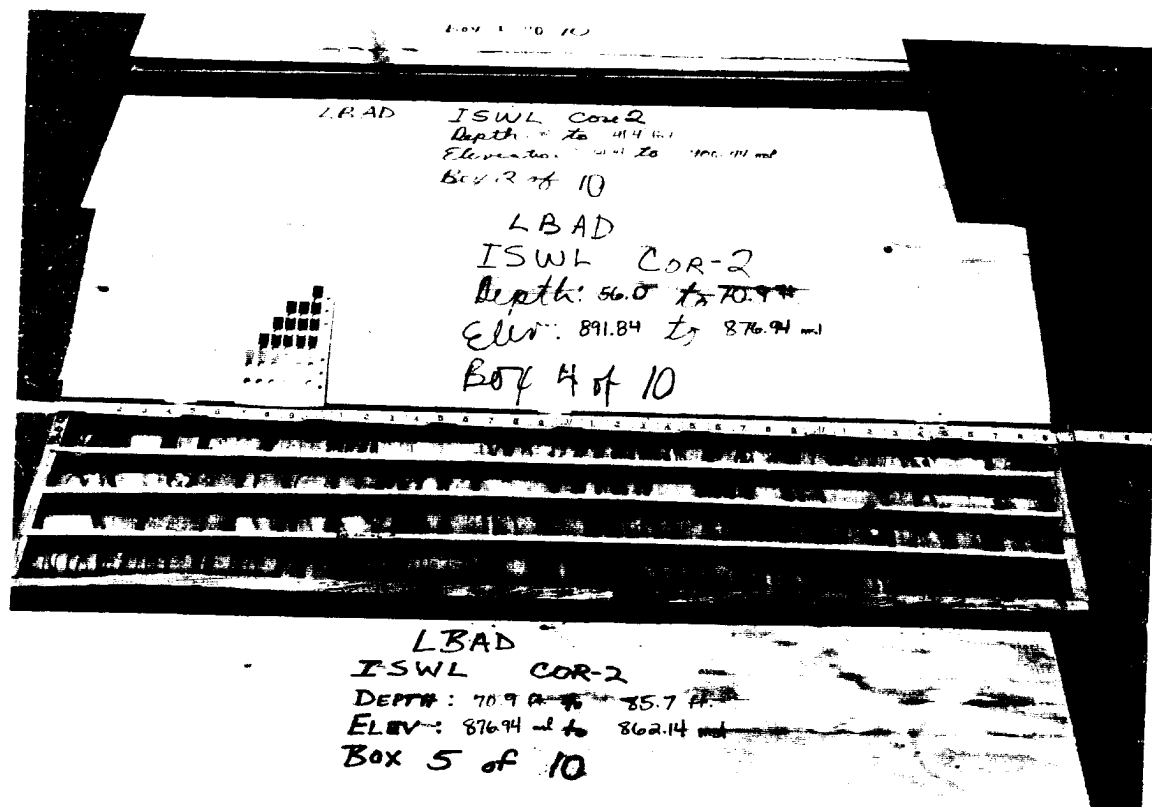 Box 10
LBAD ISWL Core 2
Depth to
Elevation to
Box 2 of 10
LBAD
ISWL COR-2
Depth: 56.0 to 70.9 ft
Elev: 891.84 to 876.94 msl
Box 4 of 10
LBAD
ISWL COR-2
DEPTH: 70.9 ft to 85.7 ft.
ELEV: 876.94 msl to 862.14 msl
Box 5 of 10